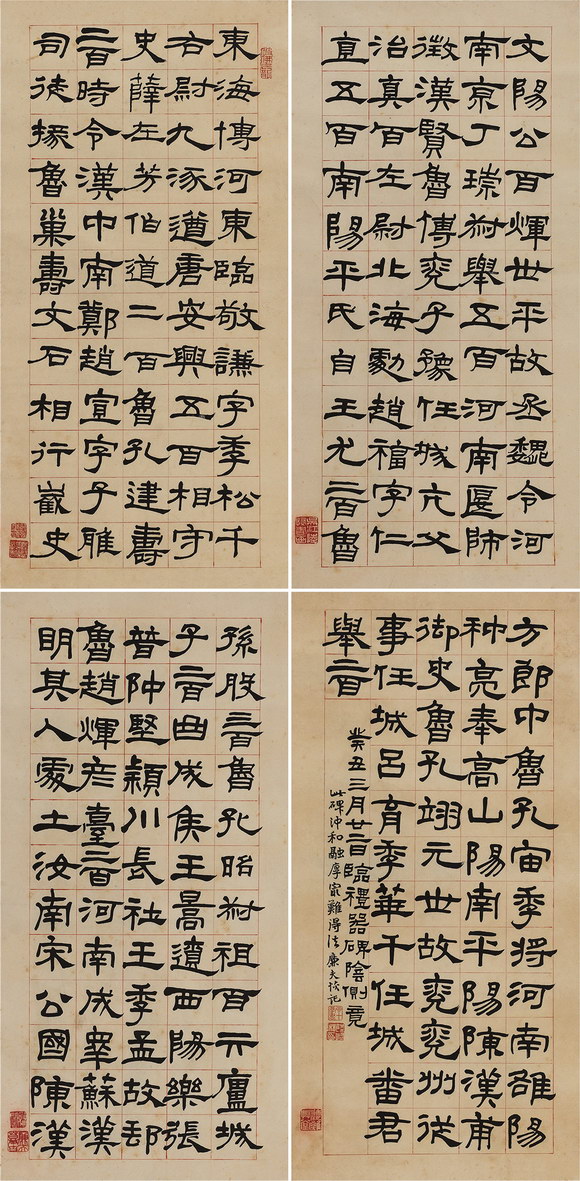 文陽公百煇世平故丞魏令河
南京丁琮叔舉五百河南匽師
徵漢賢魯傅兗子豫任城亢父
治真百左尉北海勮趙福字仁
直五百南陽平氏自王尤二百魯
東海傅河東臨敬謙字季松千
右尉九涿遒唐安興五百相守
史薛左芳伯道二百魯孔建壽
二百時令漢中南鄭趙宣字子雅
司徒掾魯巢壽文石相行義史
孫殷三百魯孔昭叔祖百亓廬城
子二百曲成侯王暠遼西陽樂張
普仲堅潁川長社王季孟故
魯趙煇彥臺二百河南成皋蘇漢
明其人處土汝南宋公國陳漢
方郎中魯孔宙季將河南雒陽
种亮奉高山陽南平陽陳漢甫
御史魯孔翊元世故兗兗州從
事任城呂育季華千任城番君
舉二百
癸丑三月廿二日臨禮器碑陰側竟
此碑沖和融厚最難得法廉夫記